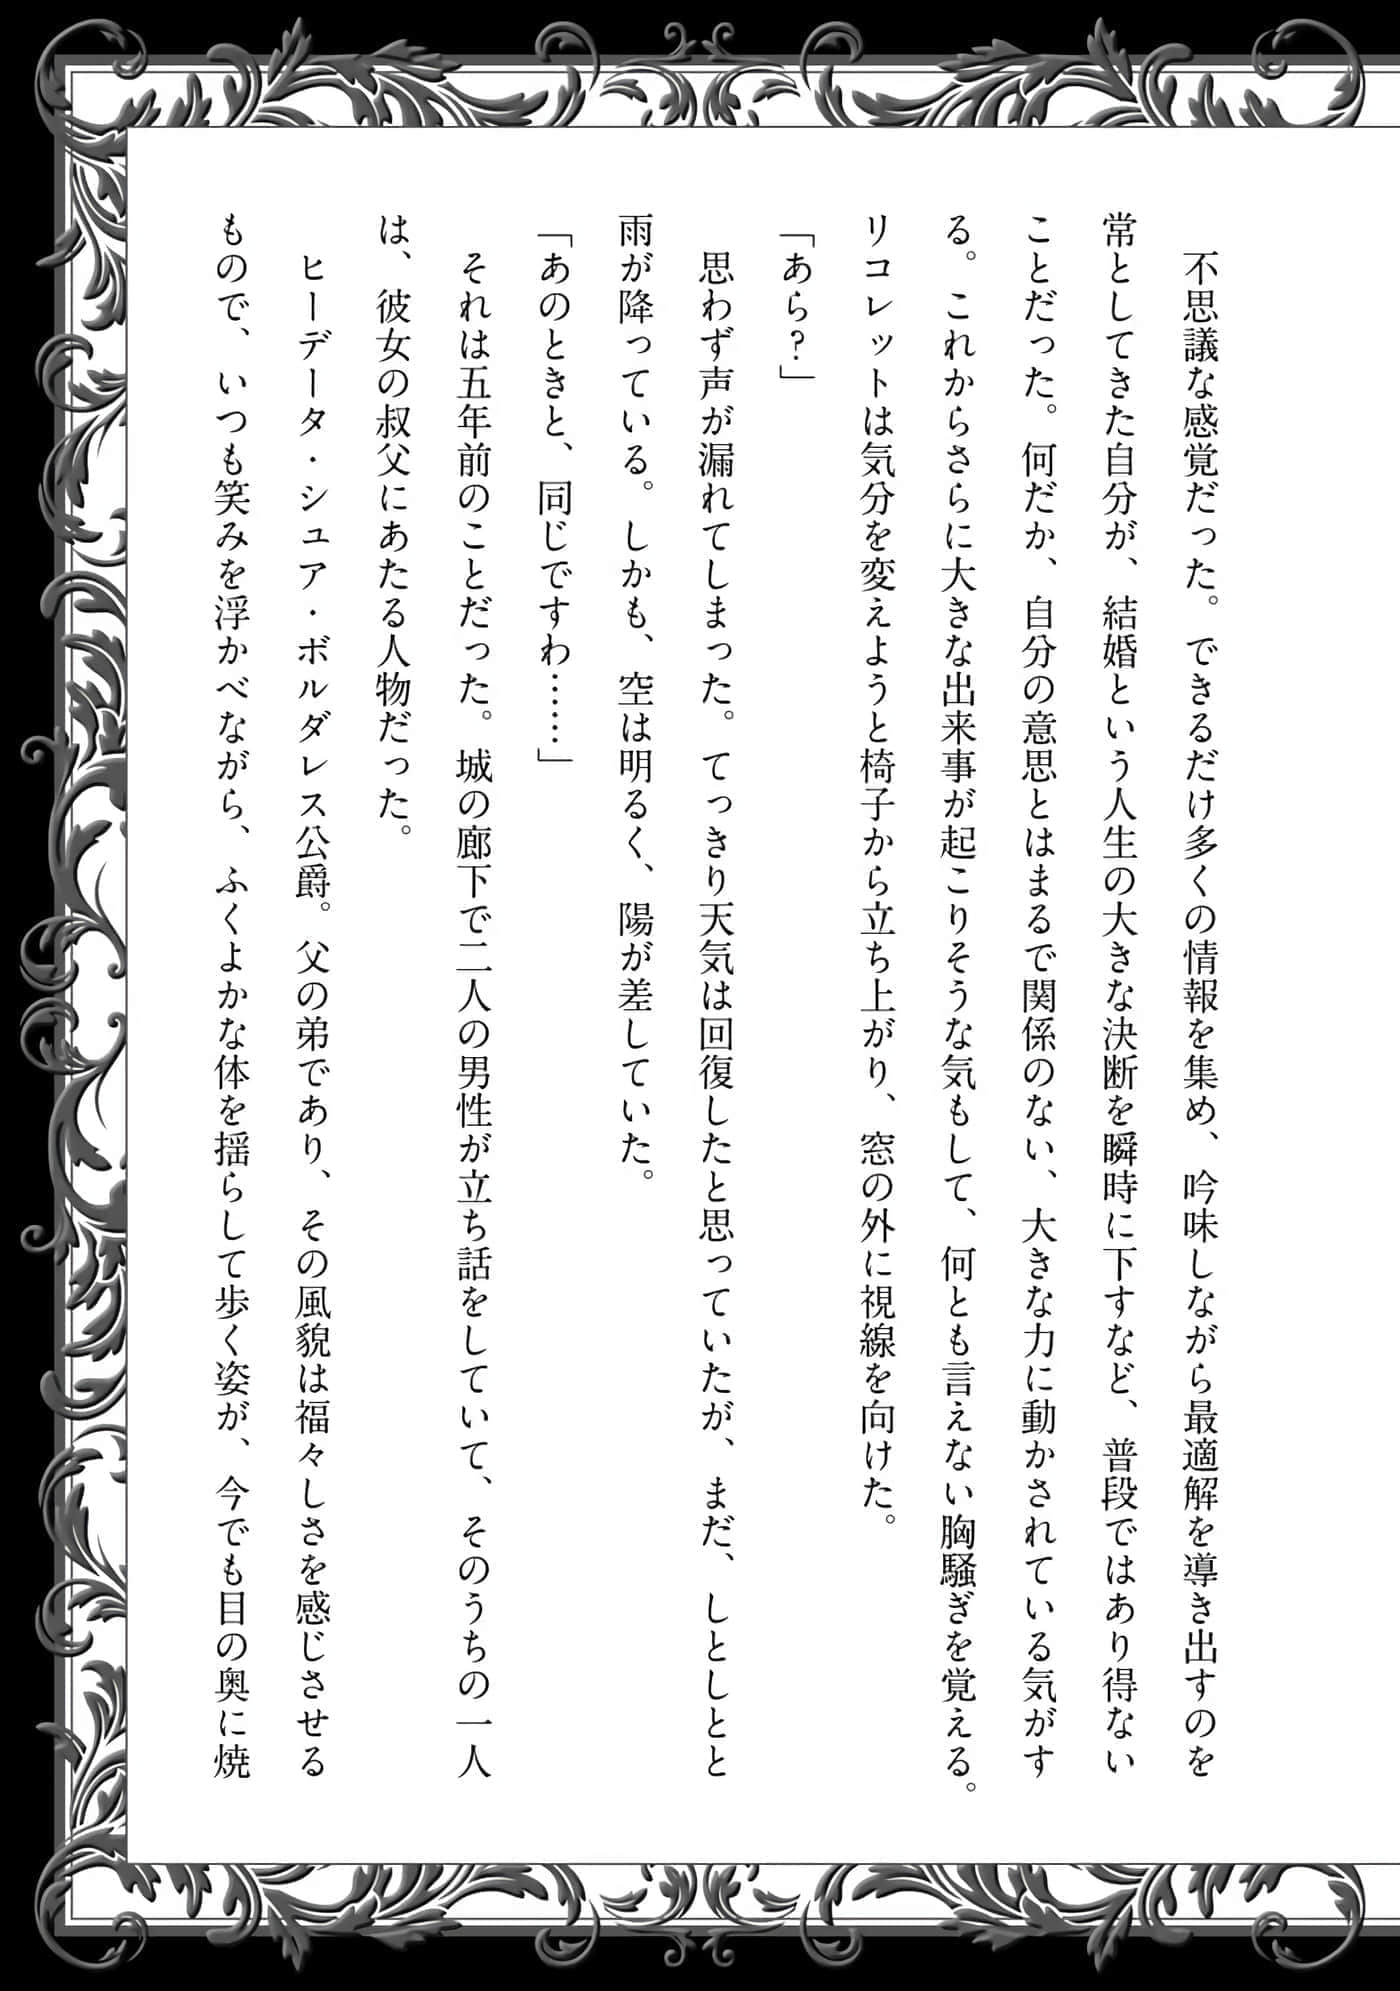 不思議な感覚だった。できるだけ多くの情報を集め、吟味しながら最適解を導き出すのを
常としてきた自分が、結婚という人生の大きな決断を瞬時に下すなど、普段ではあり得ない
ことだった。何だか、自分の意思とはまるで関係のない、大きな力に動かされている気がす
る。これからさらに大きな出来事が起こりそうな気もして、何とも言えない胸騒ぎを覚える。
リコレットは気分を変えようと椅子から立ち上がり、窓の外に視線を向けた。
「あら？」
　思わず声が漏れてしまった。てっきり天気は回復したと思っていたが、まだ、しとしとと
雨が降っている。しかも、空は明るく、陽が差していた。
「あのときと、同じですわ……」
　それは五年前のことだった。城の廊下で二人の男性が立ち話をしていて、そのうちの一人
は、彼女の叔父にあたる人物だった。
　ヒーデータ・シュア・ボルダレス公爵。父の弟であり、その風貌は福々しさを感じさせる
もので、いつも笑みを浮かべながら、ふくよかな体を揺らして歩く姿が、今でも目の奥に焼